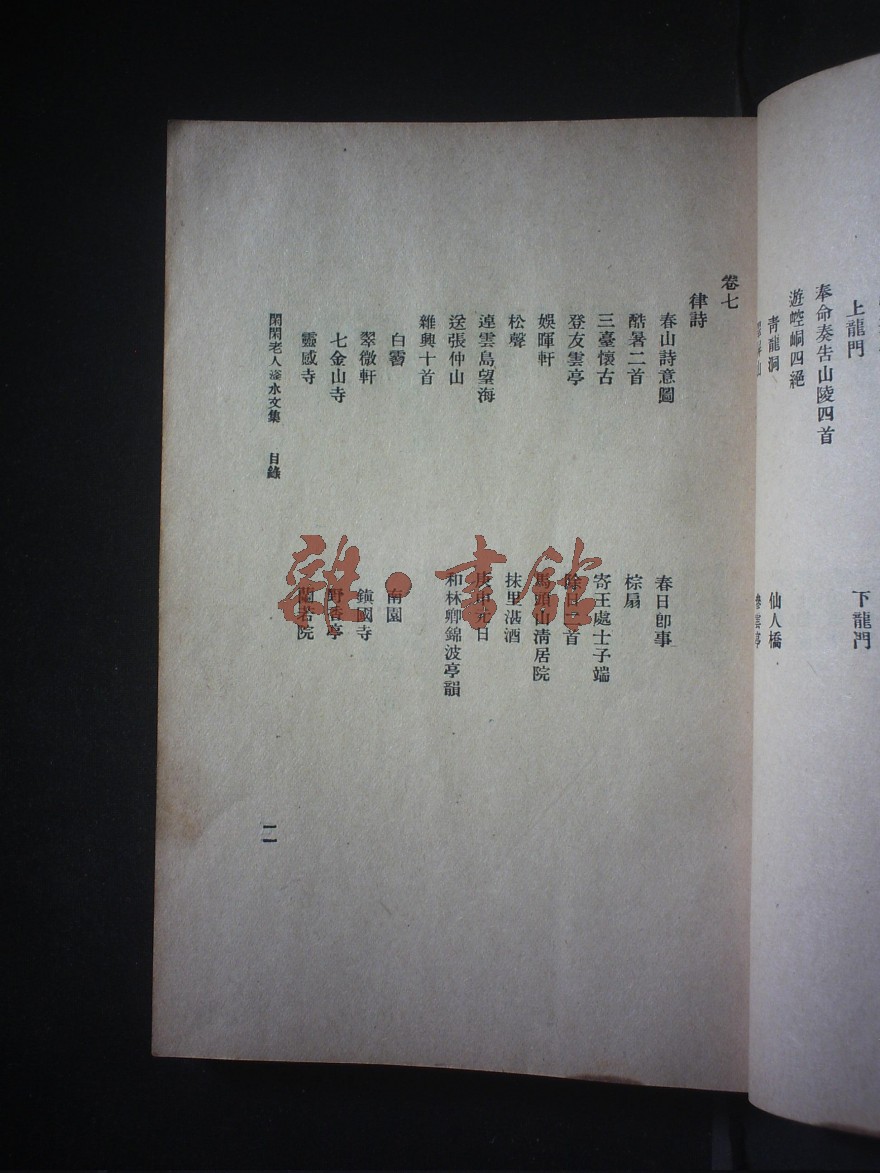 上龍門
下龍門
奉命奏告山陵四首
遊崆峒四絕
青龍洞
仙人橋
卷七
律詩
春山詩意圖
春日卽事
酷暑二首
棕扇
三臺懷古
寄王處士子端
登友雲亭
除日二首
娛暉軒
馬頭山淸居院
松聲
抹里湛酒
連雲島望海
庚申元日
送張仲山
和林卿錦波亭韻
雜興十首
白霫
南園
翠微軒
鎭國寺
七金山寺
野香亭
靈感寺
蘭若院
閑閑老人滏水文集 目錄
二
雜·書館